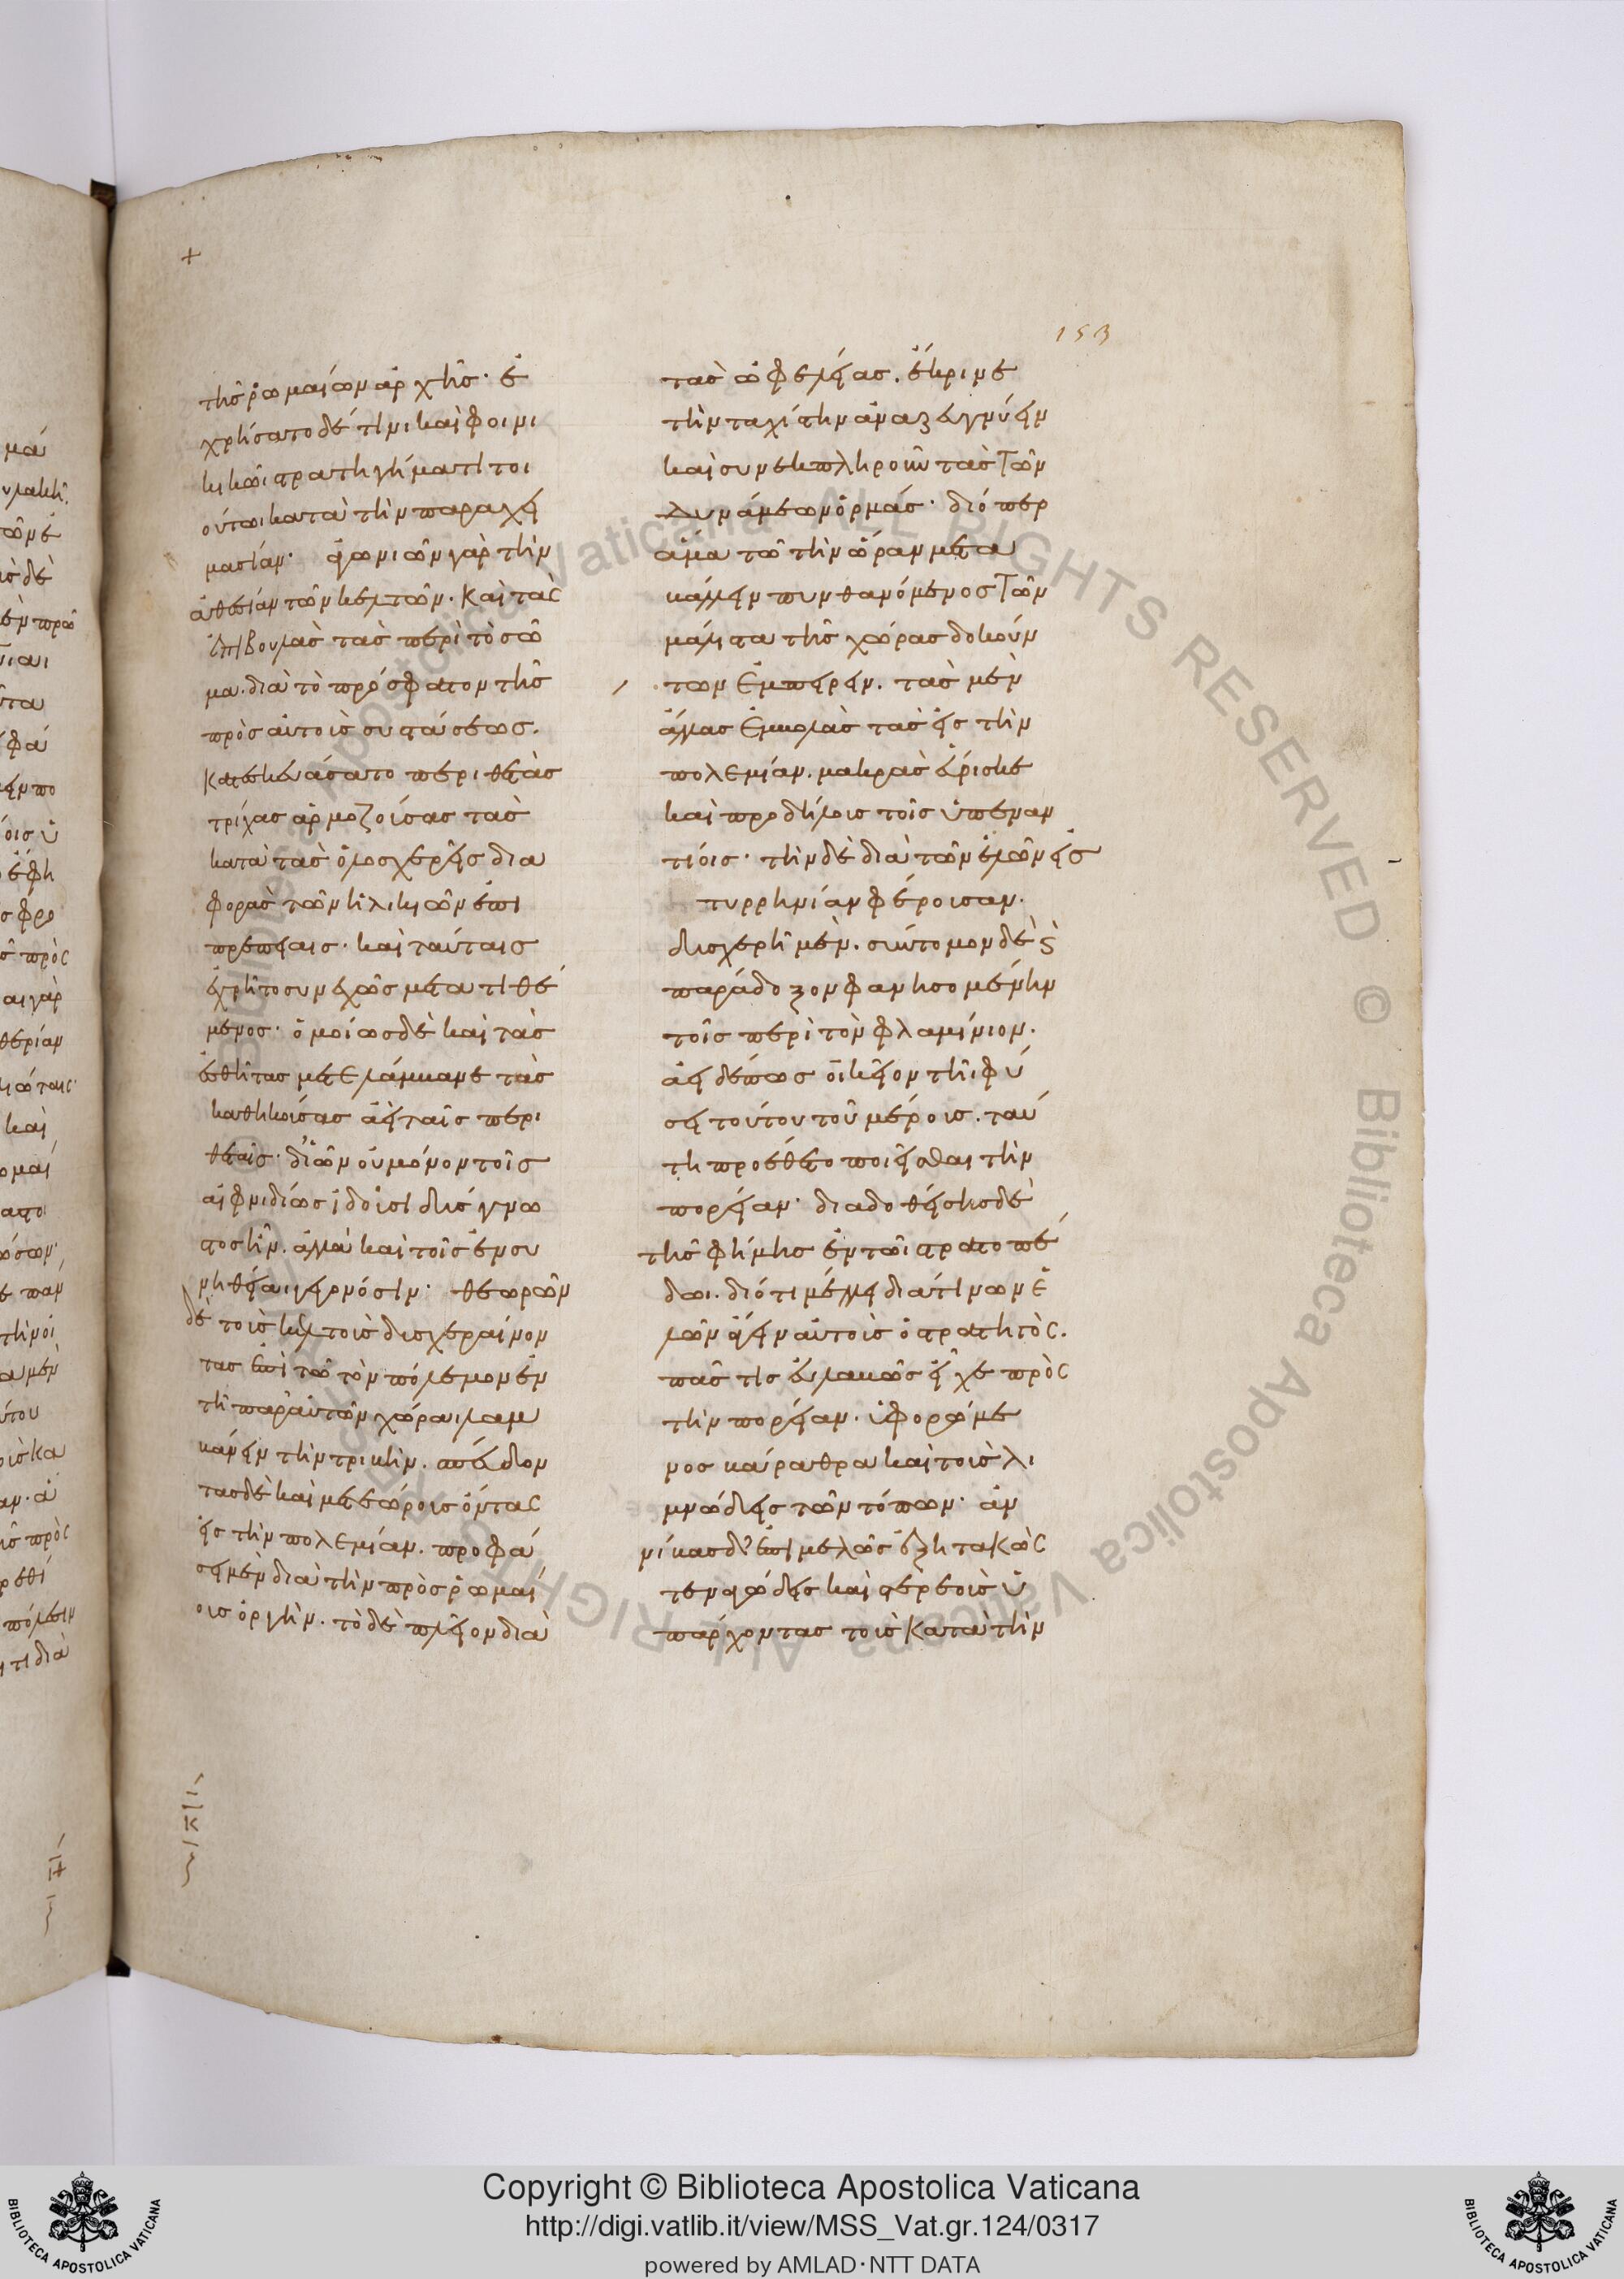 +
153
τῆς ῥωμαίων ἀρχῆς· ἐ
χρήσατο δέ τινι καὶ φοινι
κικῶι στρατηγήματι τοι
ούτωι κατὰ τὴν παραχει
μασίαν· ἀγωνιῶν γὰρ τὴν
ἀθεσίαν τῶν κελτῶν. καὶ τὰς
ἐπιβουλὰς τὰς περὶ τὸ σῶ
μα. διὰ τὸ πρόσφατον τῆς
πρὸς αὐτοὺς συστάσεως.
κατεσκευάσατο περιθετὰς
τρίχας ἁρμοζούσας τὰς
κατὰ τὰς ὁλοσχερεῖς δια
φορὰς τῶν ἡλικιῶν ἐπι
πρεπείαις· καὶ ταύταις
ἐχρῆτο συνεχῶς μετατιθέ
μενος· ὁμοίως δὲ καὶ τὰς
ἐσθῆτας μετελάμβανε τὰς
καθηκούσας ἀεὶ ταῖς περι
θεταῖς· δι' ὧν οὐ μόνον τοῖς
αἰφνιδίως ἰδοῦσι δύσγνω
στος ἦν. ἀλλὰ καὶ τοῖς ἐν συ
νηθείαι γεγονόσιν· θεωρῶν
δὲ τοὺς κελτοὺς δυσχεραίνον
τας ἐπὶ τῶ τὸν πόλεμον ἐν
τῆ παρ' αὐτῶν χώραι λαμ
βάνειν τὴν τριβὴν. σπεύδον
τας δὲ καὶ μετεώρους ὄντας
εἰς τὴν πολεμίαν. προφά
σει μὲν διὰ τὴν πρὸς ῥωμαί
ους ὀργὴν. τὸ δὲ πλεῖον διὰ
τὰς ὠφελείας. ἔκρινε
τὴν ταχίστην ἀναζευγνύειν
καὶ συνεκπληροῦν τὰς τῶν
δυνάμεων ὁρμάς· διόπερ
ἅμα τῶ τὴν ὥραν μετα
βάλλειν πυνθανόμενος τῶν
μάλιστα τῆς χώρας δοκούν
των ἐμπειρεῖν. τὰς μὲν
ἄλλας ἐμβολὰς τὰς εἰς τὴν
πολεμίαν. μακρὰς εὕρισκε
καὶ προδήλους τοῖς ὑπεναν
τίοις· τὴν δὲ διὰ τῶν ἑλῶν εἰς
τυρρηνίαν φέρουσαν.
δυσχερῆ μὲν. σύντομον δὲ καὶ
παράδοξον φανησομένην
τοῖς περὶ τὸν φλαμίνιον.
ἀεὶ δέ πως οἰκεῖον τῆι φύ
σει τούτου τοῦ μέρους. ταύ
τη προέθετο ποιεῖσθαι τὴν
πορείαν· διαδοθείσης δὲ
τῆς φήμης ἐν τῶι στρατοπέ
δωι. διότι μέλλει διά τινων ἑ
λῶν ἄγειν αὐτοὺς ὁ στρατηγός.
πᾶς τις εὐλαβῶς εἶχε πρὸς
τὴν πορείαν· ὑφορώμε
νος βάραθρα καὶ τοὺς λι
μνώδεις τῶν τόπων· ἀν
νίβας δ' ἐπιμελῶς ἐξητακὼς
τεναγώδεις καὶ στερεοὺς ὑ
πάρχοντας τοὺς κατὰ τὴν
Copyright © Biblioteca Apostolica Vaticana
http://digi.vatlib.it/view/MSS_Vat.gr.124/0317
powered by AMLAD·NTT DATA